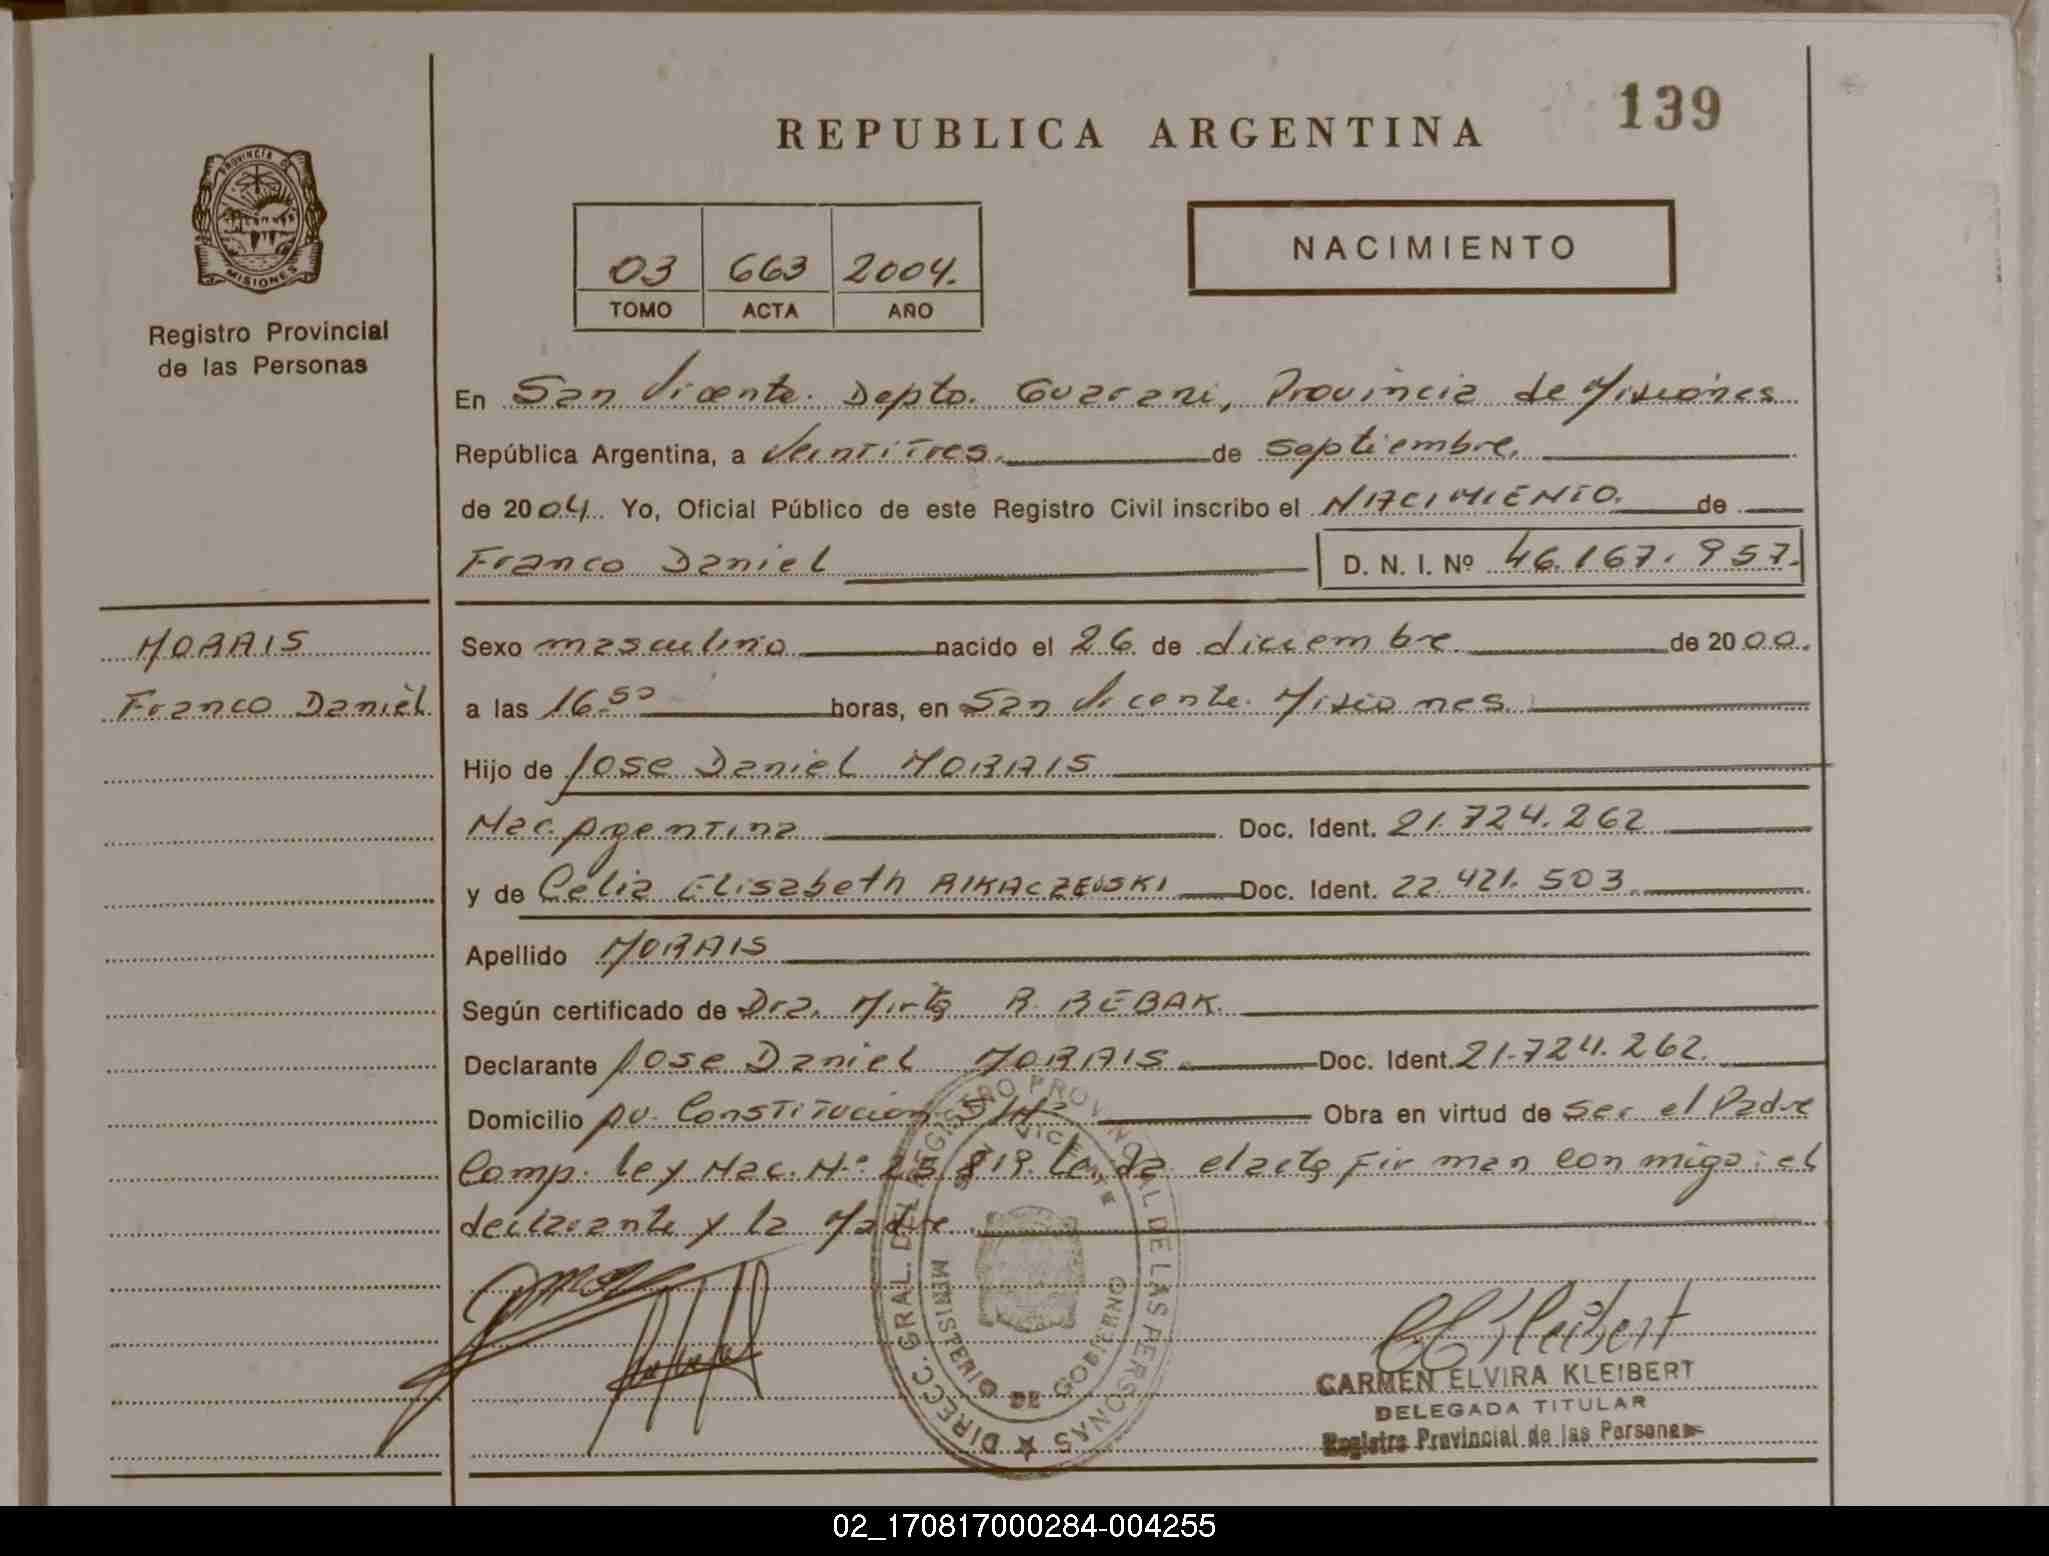 139
REPUBLICA ARGENTINA
PROVINCIA D
MISIONES
Registro Provincial
de las Personas
NACIMIENTO
03 663 2004.
TOMO ACTA AÑO
En San Vicente. Depto. Guarani, Provincia de Misiones
República Argentina, a Veintitres. de septiembre.
de 2004. Yo, Oficial Público de este Registro Civil inscribo el NACIMIENTO. de
Franco Daniel D. N. I. Nº 46.167.957.
MORAIS
Franco Daniel
Sexo masculino nacido el 26 de diciembre. de 2000.
a las 16.50 horas, en San Vicente. Misiones.
Hijo de Jose Daniel MORAIS
Nac. Argentina Doc. Ident. 21.724.262
y de Celia Elisabeth Doc. Ident. 22.421.503
Apellido MORAIS
Según certificado de Dra. Mirta R. REBAK.
Declarante Jose Daniel MORAIS. Doc. Ident. 21.724.262.
Domicilio Av. Constitucion S/Nº Obra en virtud de ser el Padre
Comp. ley Nac. Nº 25.819. el acta Firman conmigo: el
declarante y la Madre
DIRECC. GRAL. DEL REGISTRO PROVINCIAL DE LAS PERSONAS
SAN VICENTE
MINISTERIO DE GOBIERNO
CKleibert
CARMEN ELVIRA KLEIBERT
DELEGADA TITULAR
Registro Provincial de las Personas
02_170817000284-004255